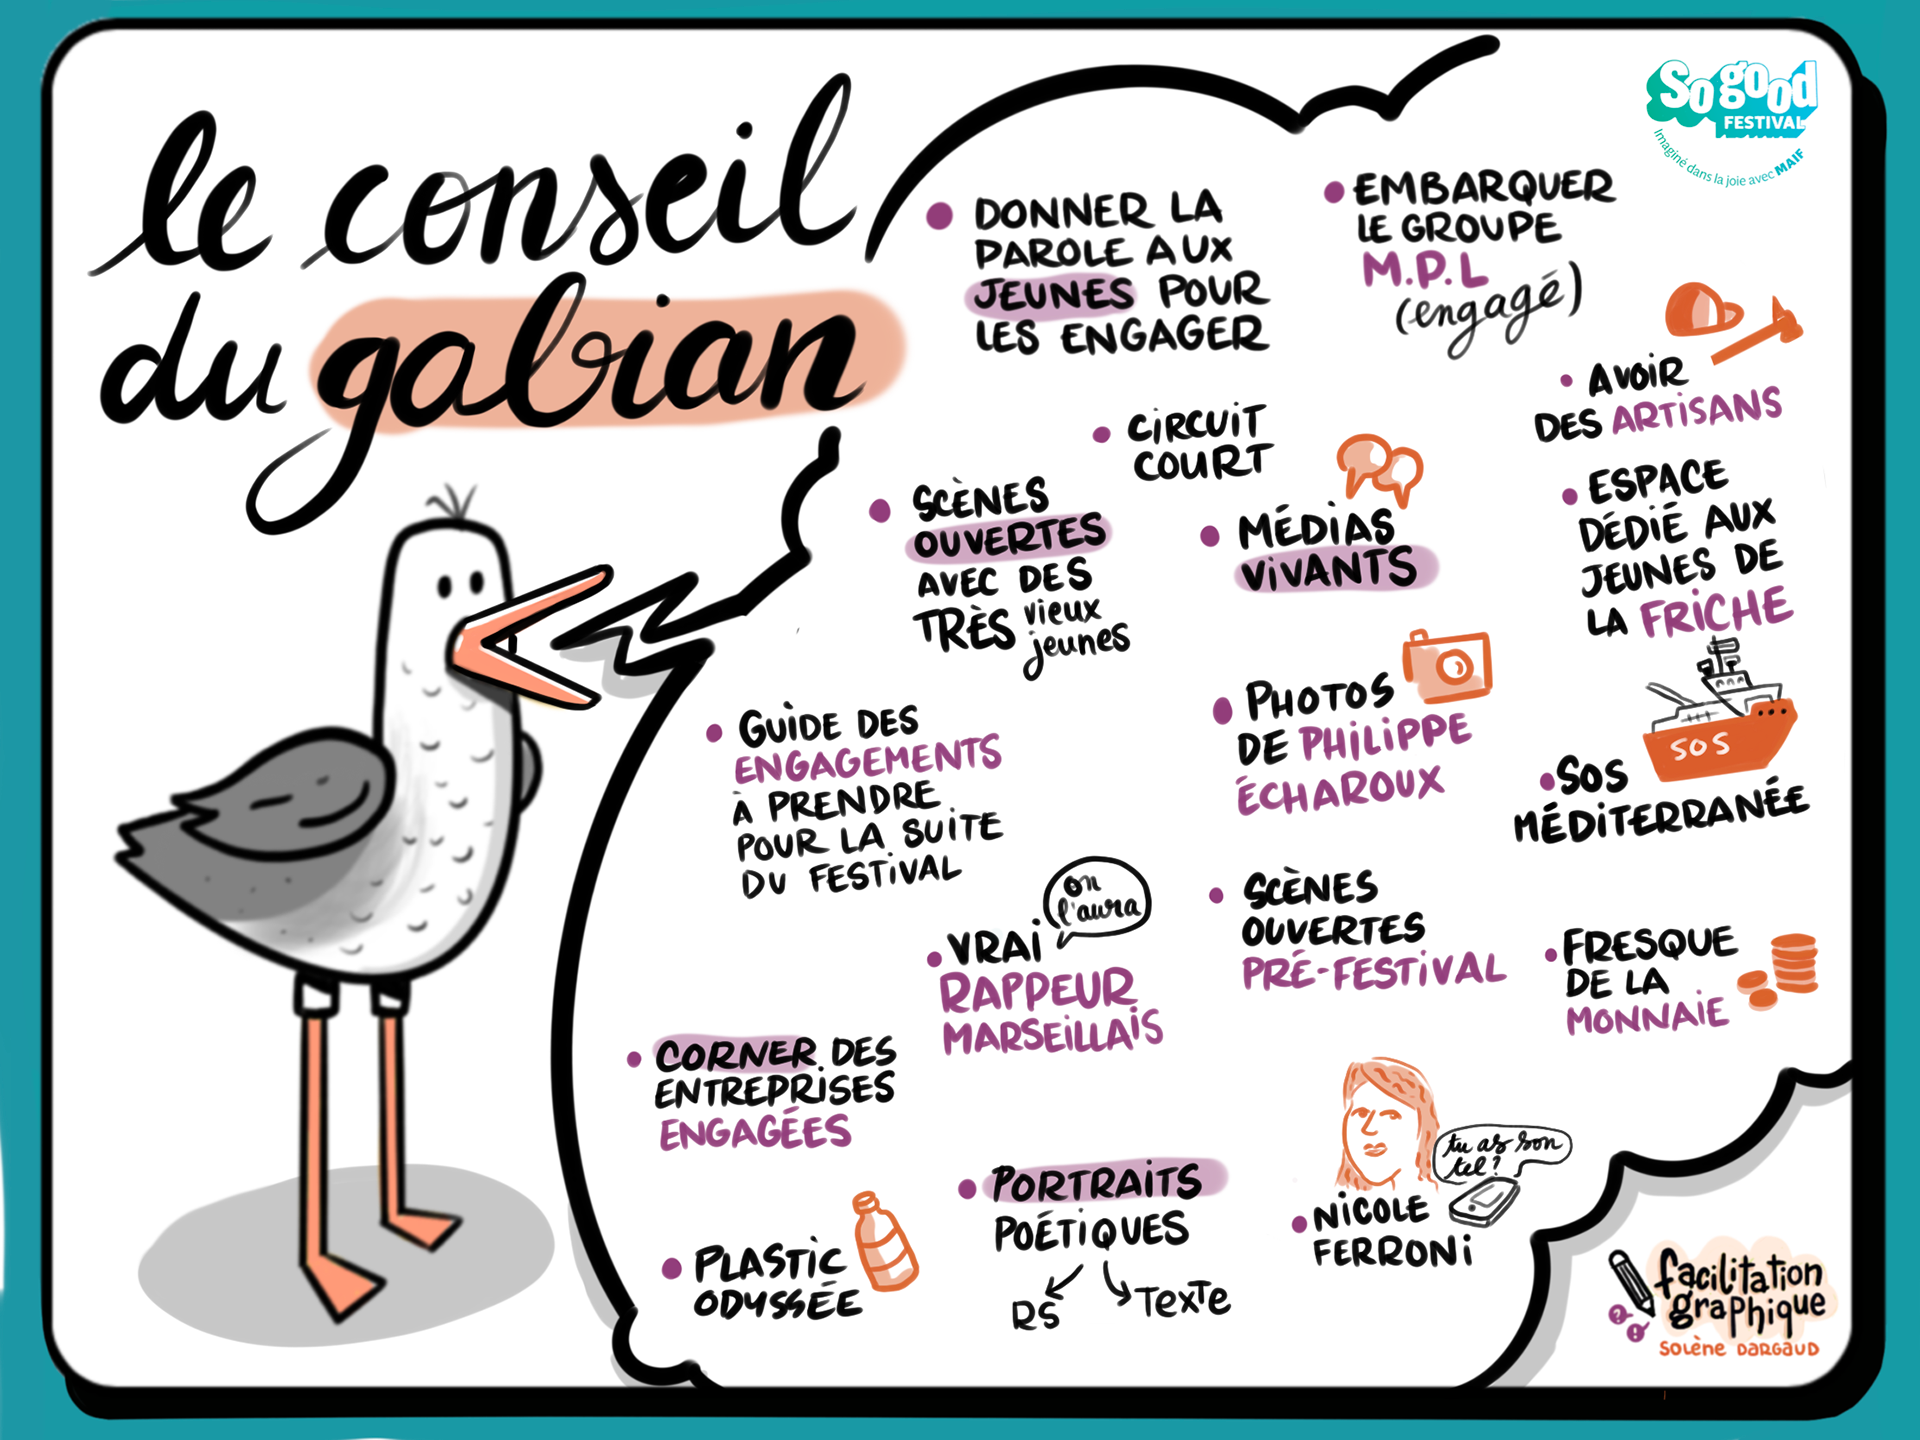 le conseil
du gabian
So good
FESTIVAL
Imaginé dans la joie avec MAIF
• DONNER LA
PAROLE AUX
JEUNES POUR
LES ENGAGER
• EMBARQUER
LE GROUPE
M.P.L
(engagé)
• AVOIR
DES ARTISANS
• CIRCUIT
COURT
• SCÈNES
OUVERTES
AVEC DES
TRÈS vieux
jeunes
• MÉDIAS
VIVANTS
• ESPACE
DÉDIÉ AUX
JEUNES DE
LA FRICHE
• GUIDE DES
ENGAGEMENTS
À PRENDRE
POUR LA SUITE
DU FESTIVAL
• PHOTOS
DE PHILIPPE
ÉCHAROUX
SOS
• SOS
MÉDITERRANÉE
on
l'aura
• VRAI
RAPPEUR
MARSEILLAIS
• SCÈNES
OUVERTES
PRÉ-FESTIVAL
• FRESQUE
DE LA
MONNAIE
• CORNER DES
ENTREPRISES
ENGAGÉES
• PLASTIC
ODYSSÉE
• PORTRAITS
POÉTIQUES
RS
TEXTE
tu as son
tel?
• NICOLE
FERRONI
facilitation
graphique
? !
SOLÈNE DARGAUD